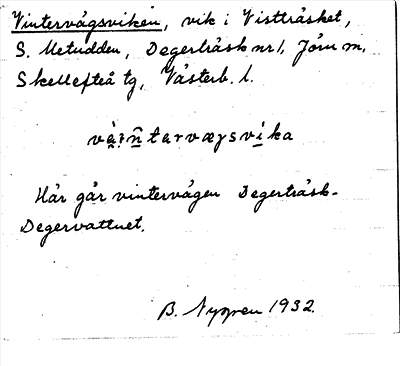 Vintervägsviken, vik i Vistträsket,
S. Metudden, Degerträsk nr 1, Jörn m,
Skellefteå tg, Västerb. l.
Här går vintervägen Degerträsk-
Degervattnet.
B. Nygren 1932.